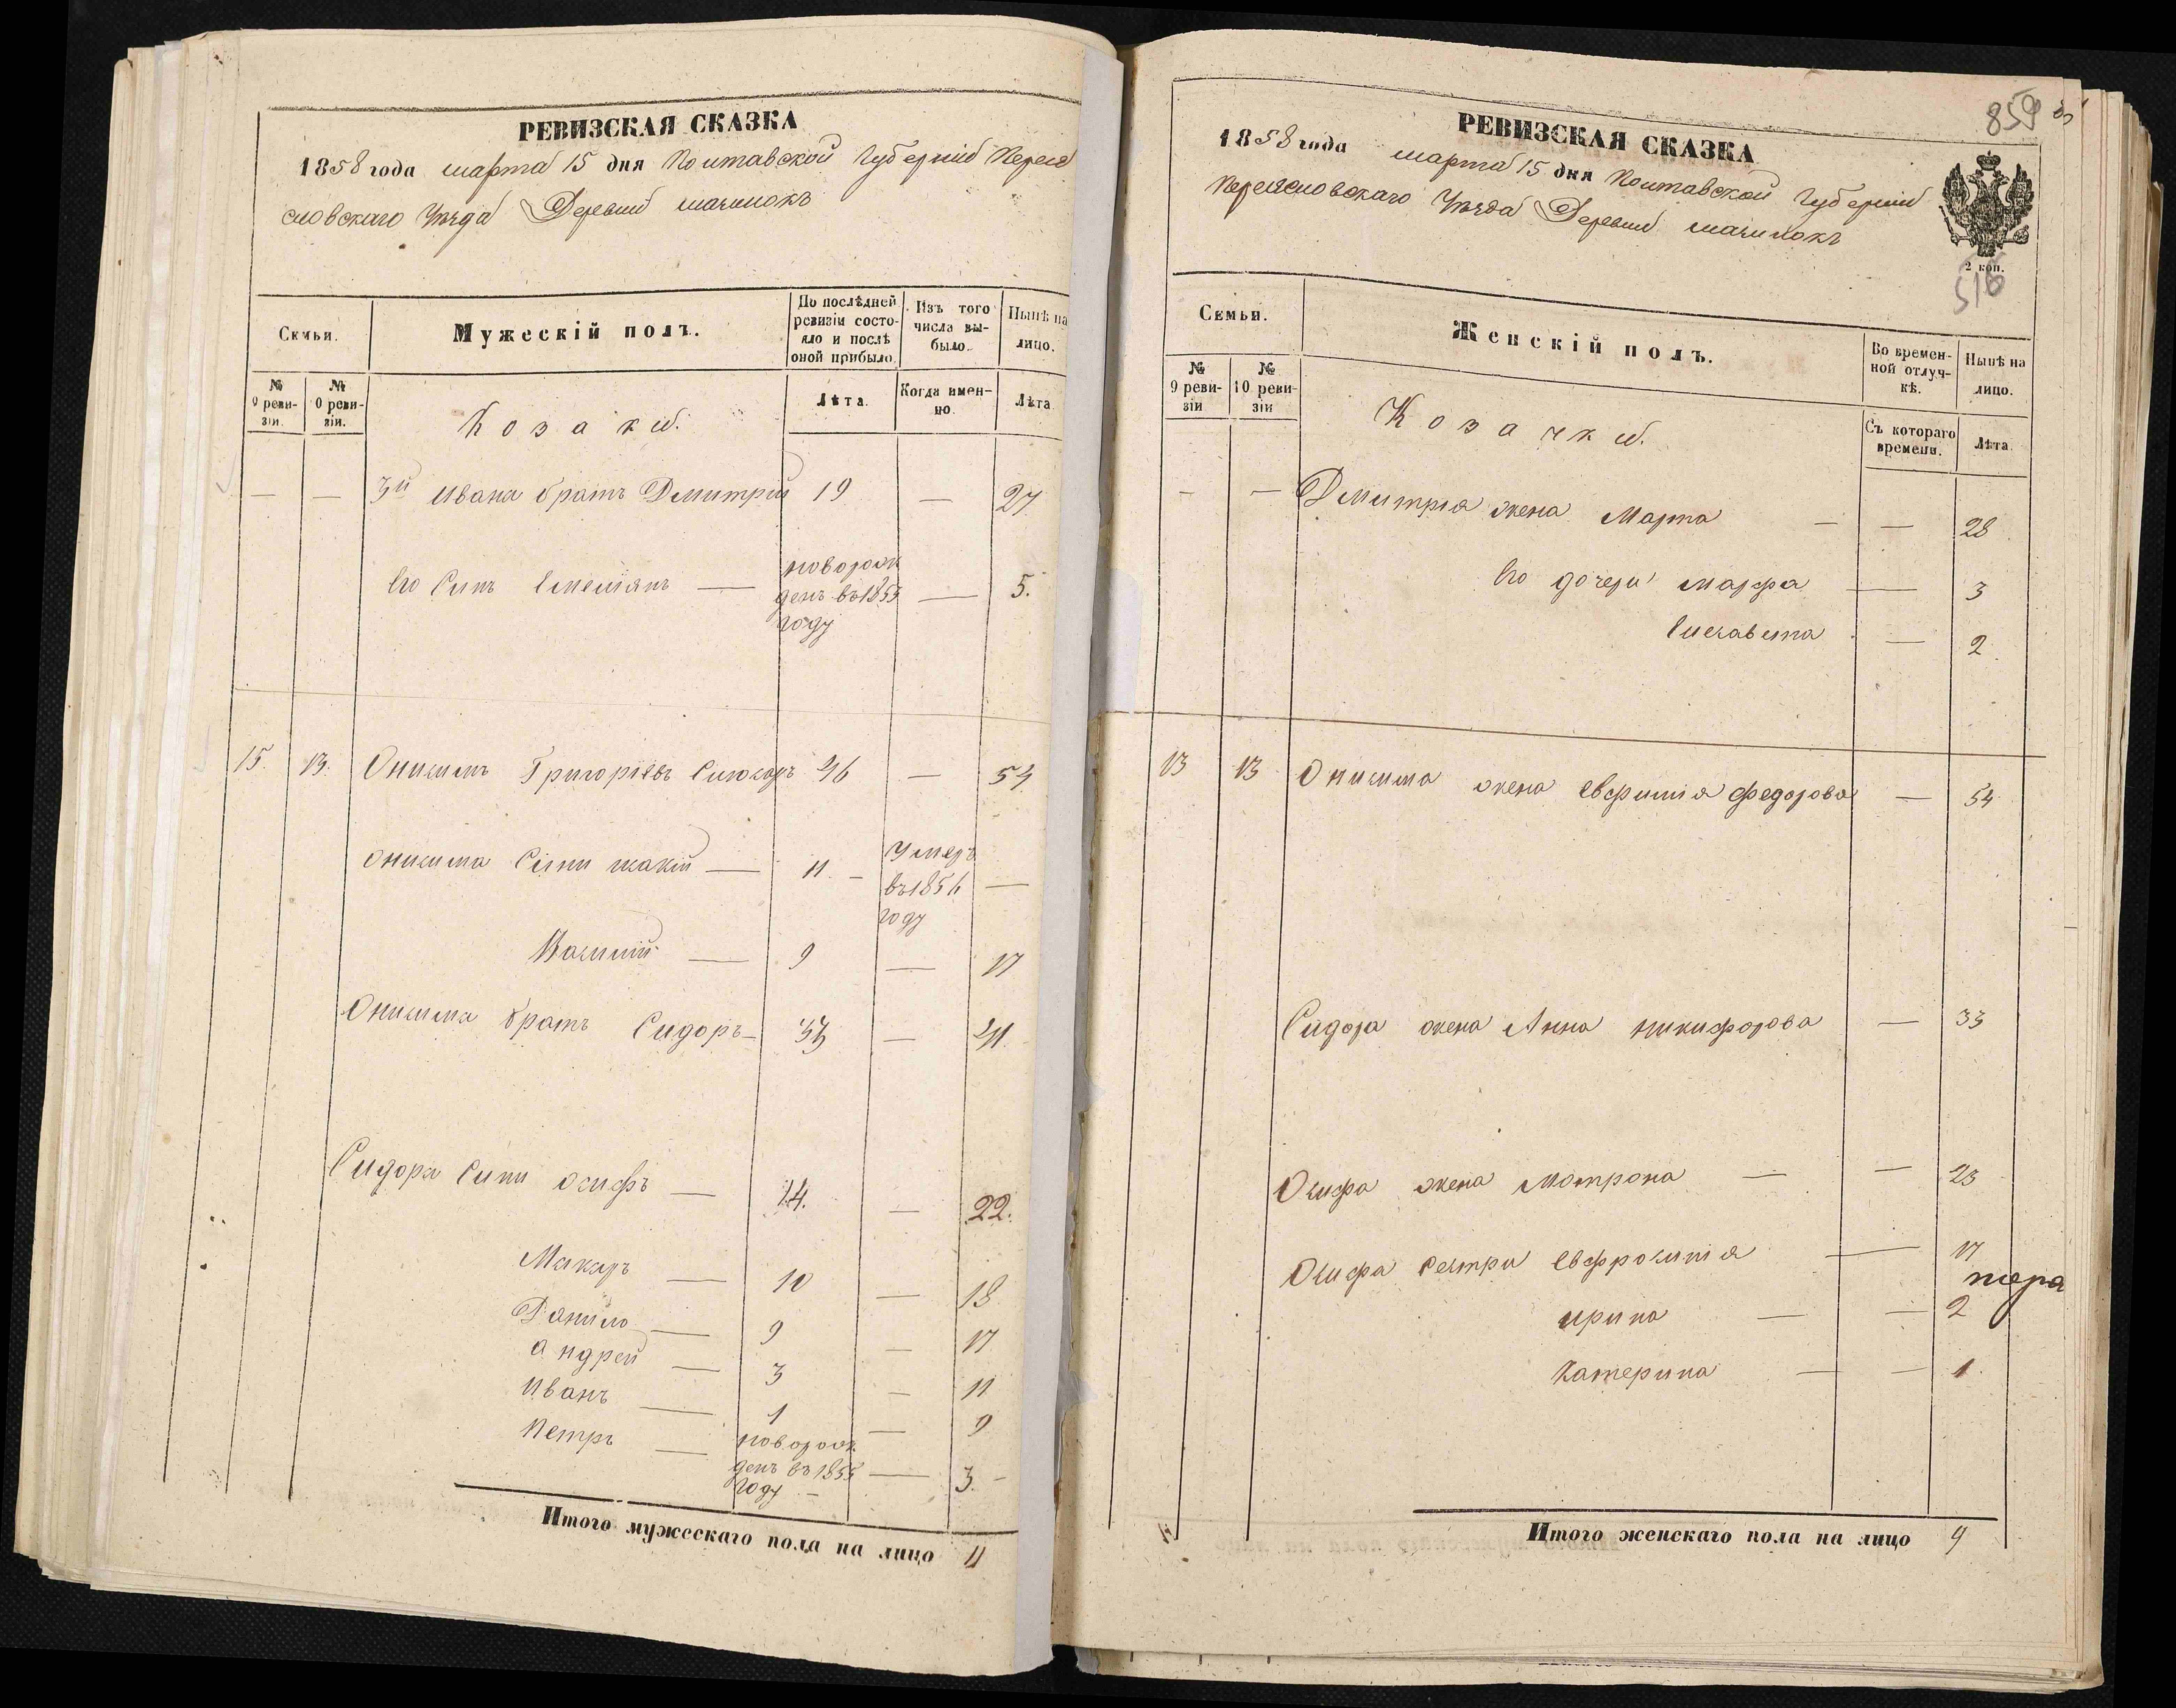 РЕВИЗСКАЯ СКАЗКА
1858 года марта 15 дня Полтавской Губерніи Перея
словскаго Уѣзда Деревни
Семьи.
Мужескій полъ.
По послѣдней ревизіи состояло и послѣ оной прибыло.
Изъ того числа выбыло.
Нынѣ на лицо.
№ 9 ревизіи.
№ 10 ревизіи.
Козаки.
Лѣта.
Когда именно.
Лѣта
— — 3й Ивана братъ Дмитрій 19 — 27
Его Синъ Емеліянъ — новорож
денъ въ 1853 — 5.
году
15. 13. Онисимъ Григоріевъ 46 — 54
Онисима Сини — 11. — Умеръ
въ 1856 —
году
Василій — 9 — 17
Онисима братъ Сидоръ — 33 — 41
Сидора Сини Осифъ — 14. — 22.
Макаръ — 10 — 18
Данило — 9 — 17
Андрей — 3 — 11
Иванъ — 1 — 9
Петръ — новорож
денъ въ 1855 — 3. —
году —
Итого мужескаго пола на лицо 11
859
РЕВИЗСКАЯ СКАЗКА
1858 года марта 15 дня Полтавской Губерніи
Переясловскаго Уѣзда Деревни
2 коп.
516
Семьи.
Женскій полъ.
Во временной отлучкѣ.
Нынѣ на лицо.
№ 9 ревизіи
№ 10 ревизіи
Козачки.
Съ котораго времени.
Лѣта.
— — Дмитрія жена Марта — — 28
Его дочери Марфа — 3
Елисавета — 2.
13 13 Онисима жена Евфимія Федорова — 54
Сидора жена Анна Никифорова — 33
Осифа жена Мотрона — — 23
Осифа сестри Евфросинія — 17
Ирина — — 2
Катерина — — 1.
Итого женскаго пола на лицо 9